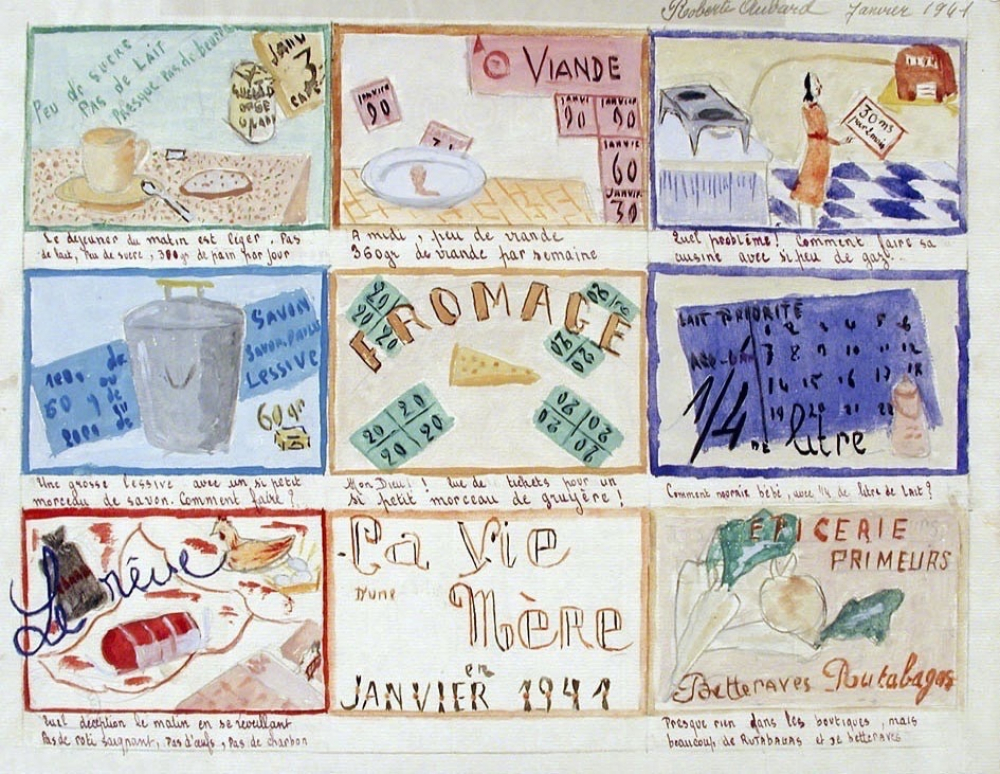 Roberte Aubard Janvier 1941
Peu de sucre
Pas de lait
Presque pas de beurre
JANV
3
CAFÉ
VIANDE
JANVIER
90
JANVI
90
JANVIER
90
JANVIE
60
JANVIER
30
30 m3
par mois
Le déjeuner du matin est léger. Pas
de lait, Peu de sucre, 300gr de pain par jour
A midi, peu de viande
360gr de viande par semaine
Quel problème! Comment faire sa
cuisine avec si peu de gaz!..
SAVON
LESSIVE
60gr
FROMAGE
20 20
20 20
20
20 20
20 20
20 20
20 20
20 20
LAIT PRIORITE
2 4 5 6
7 8 9 10 11 12
14 15 16 17 18
19 20 21 22
1/4
DE litre
Une grosse lessive avec un si petit
morceau de savon. Comment faire?
Mon Dieu! Que de tickets pour un
si petit morceau de gruyère!
Comment nourrir bébé, avec 1/4 de litre de lait?
Le rêve
La Vie
D'une
Mère
en
JANVIER 1941
EPICERIE
PRIMEURS
Betteraves Rutabagas
Quel déception le matin en se réveillant
Pas de roti saignant, Pas d'œufs, Pas de charbon
Presque rien dans les boutiques, mais
beaucoup de RUTABAGAS et de betteraves